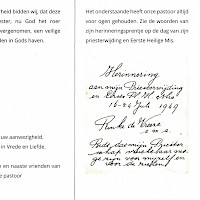 heid bidden wij, dat deze
ster, nu God het roer
vergenomen, een veilige
den in Gods haven.
uw aanwezigheid.
in Vrede en Liefde.
e en naaste vrienden van
e pastoor
Het onderstaande heeft onze pastoor altijd
voor ogen gehouden. Zie de woorden van
zijn herinneringsprentje op de dag van zijn
priesterwijding en Eerste Heilige Mis.
Herinnering
aan mijn Priesterwijding
en Eerste H. Mis
16-24 Juli 1949
s.m.a.
dat mijn Priester
schap vruchtbaar mo-
ge zijn voor mijzelf en
voor de zielen!